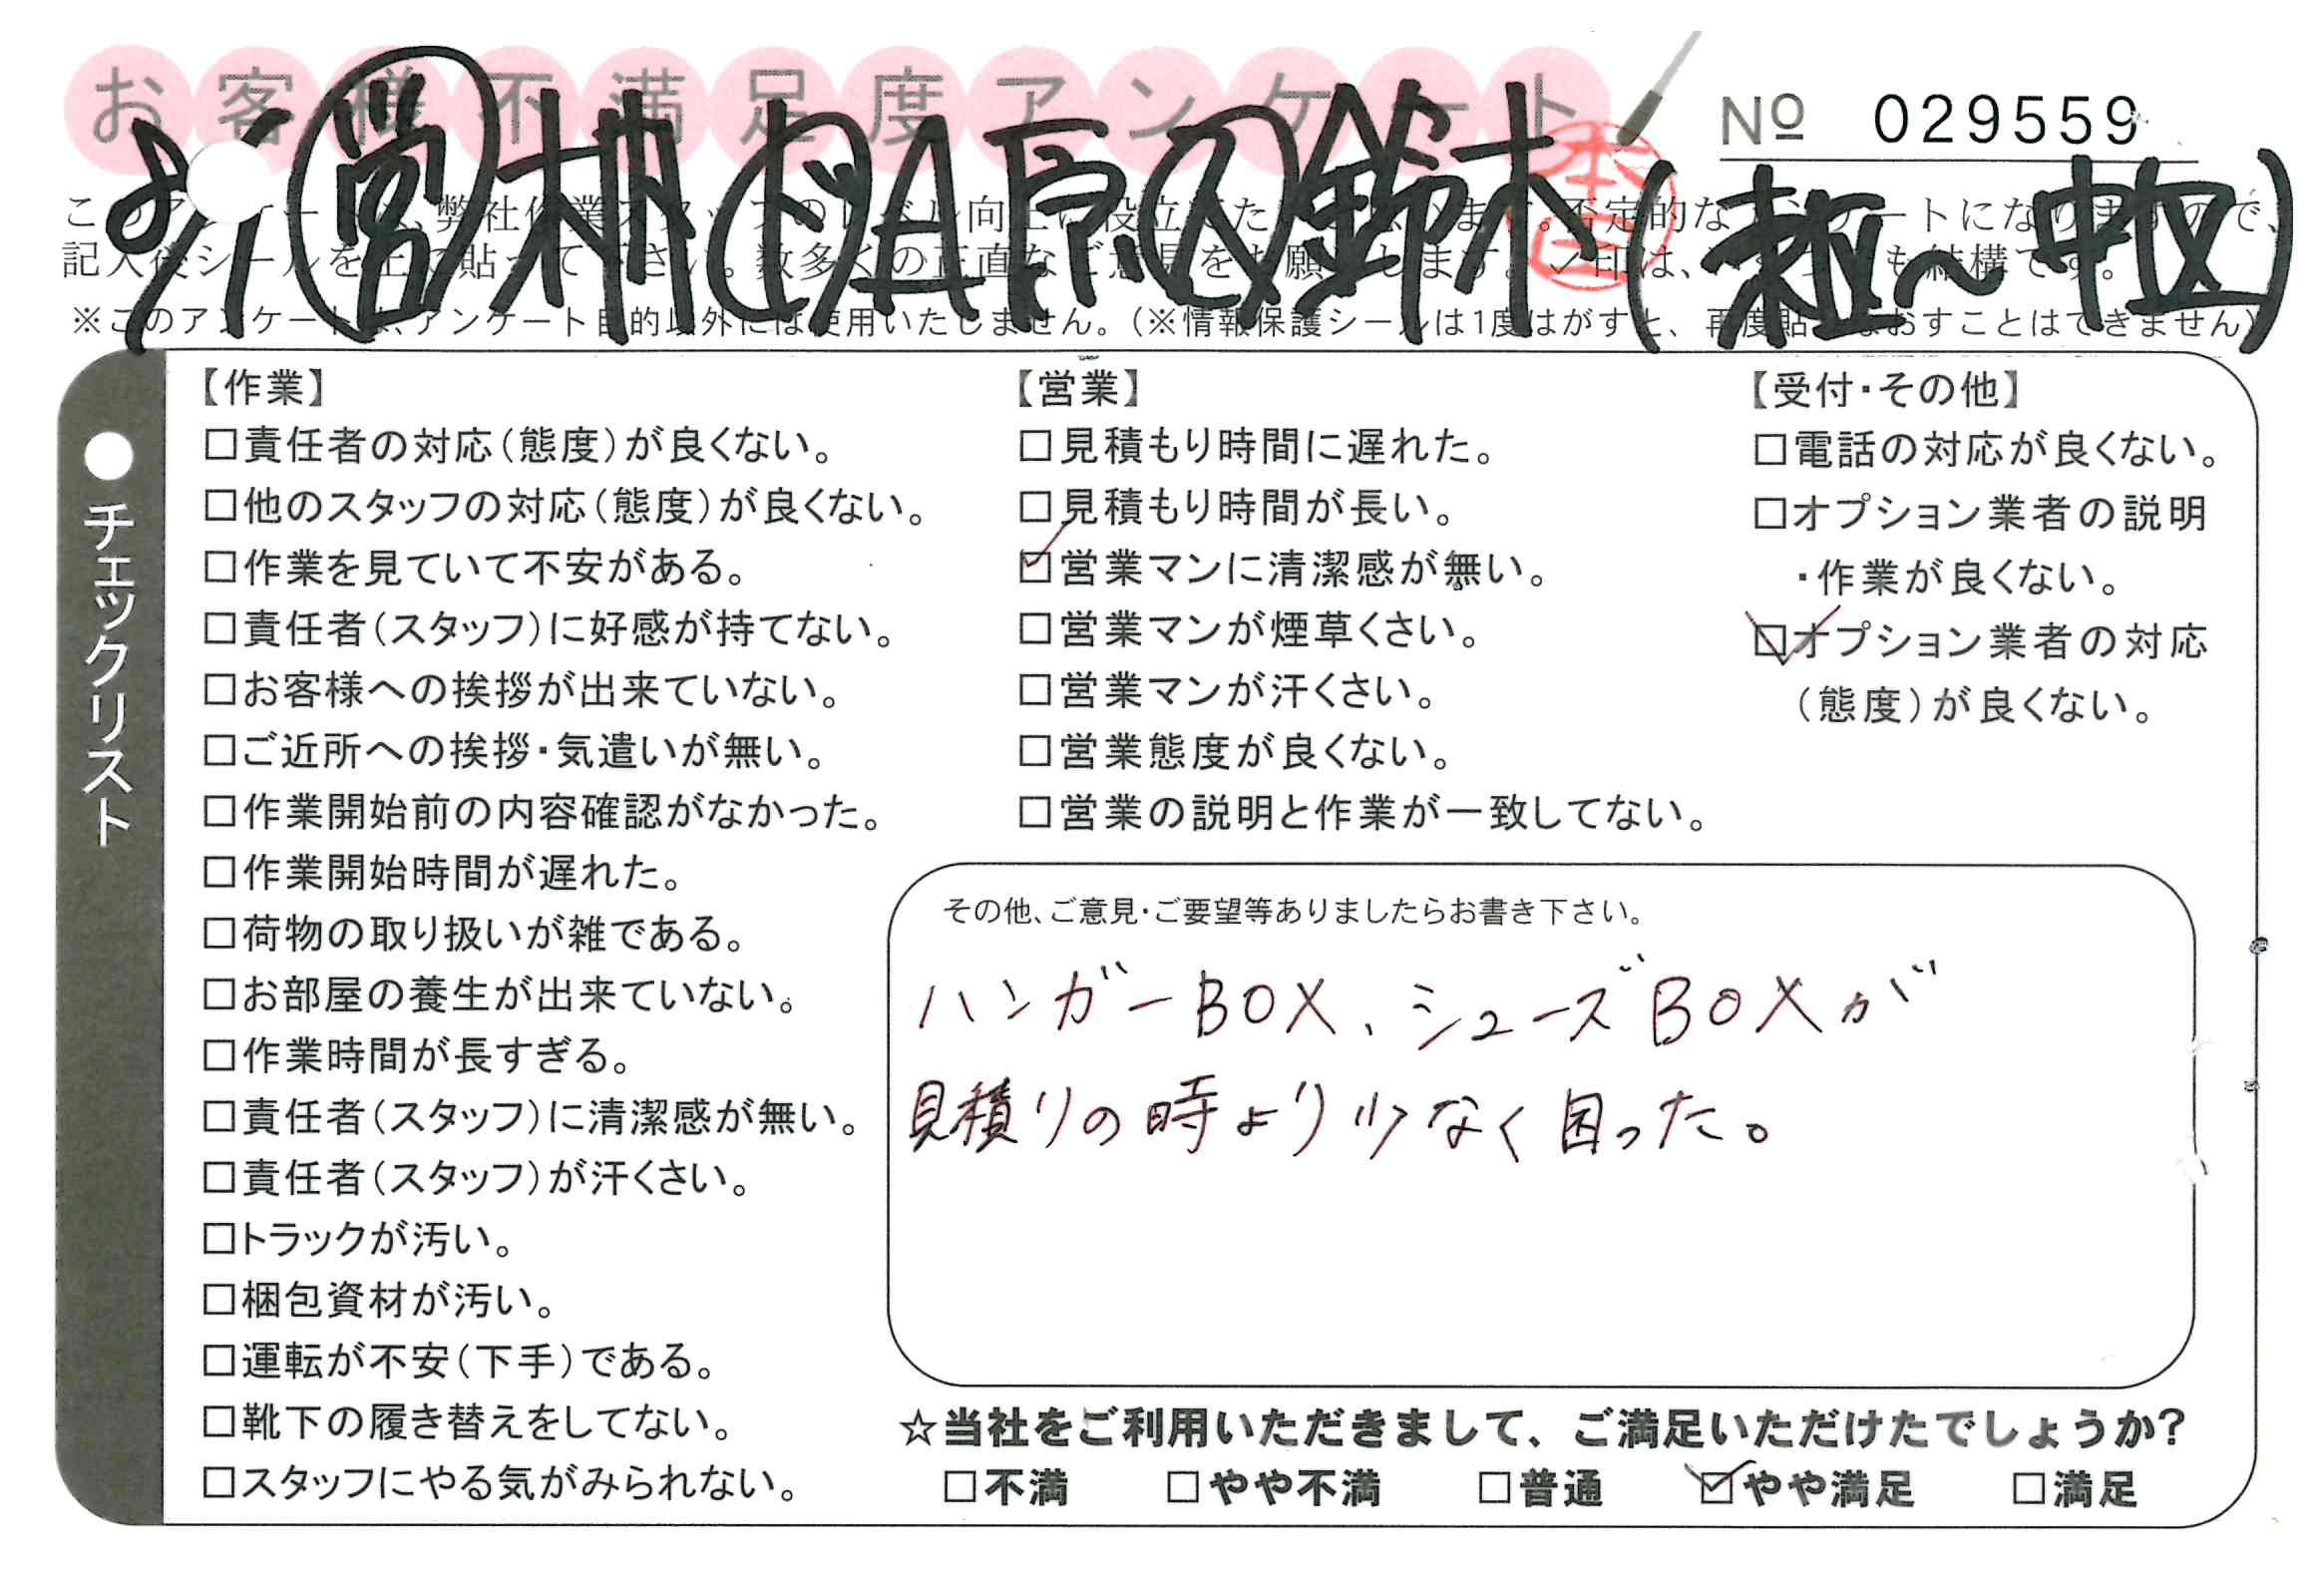 お客様不満足度アンケート
№ 029559
8/1 営 柄 ド A原 〆 鈴木 (東区~中区)
本山
このアンケートは、弊社作業スタッフのレベル向上に役立てたいと思います。否定的なアンケートになりますので、
記入後シールを上に貼って下さい。数多くの正直なご意見をお願いします。レ印は、いくつでも結構です。
※このアンケートは、アンケート目的以外には使用いたしません。(※情報保護シールは1度はがすと、再度貼りなおすことはできません)
●チェックリスト
【作業】
□責任者の対応(態度)が良くない。
□他のスタッフの対応(態度)が良くない。
□作業を見ていて不安がある。
□責任者(スタッフ)に好感が持てない。
□お客様への挨拶が出来ていない。
□ご近所への挨拶・気遣いが無い。
□作業開始前の内容確認がなかった。
□作業開始時間が遅れた。
□荷物の取り扱いが雑である。
□お部屋の養生が出来ていない。
□作業時間が長すぎる。
□責任者(スタッフ)に清潔感が無い。
□責任者(スタッフ)が汗くさい。
□トラックが汚い。
□梱包資材が汚い。
□運転が不安(下手)である。
□靴下の履き替えをしてない。
□スタッフにやる気がみられない。
【営業】
□見積もり時間に遅れた。
□見積もり時間が長い。
☑営業マンに清潔感が無い。
□営業マンが煙草くさい。
□営業マンが汗くさい。
□営業態度が良くない。
□営業の説明と作業が一致してない。
【受付・その他】
□電話の対応が良くない。
□オプション業者の説明
・作業が良くない。
☑オプション業者の対応
(態度)が良くない。
その他、ご意見・ご要望等ありましたらお書き下さい。
ハンガーBOX、シューズBOXが
見積りの時より少なく困った。
☆当社をご利用いただきまして、ご満足いただけたでしょうか?
□不満 □やや不満 □普通 ☑やや満足 □満足